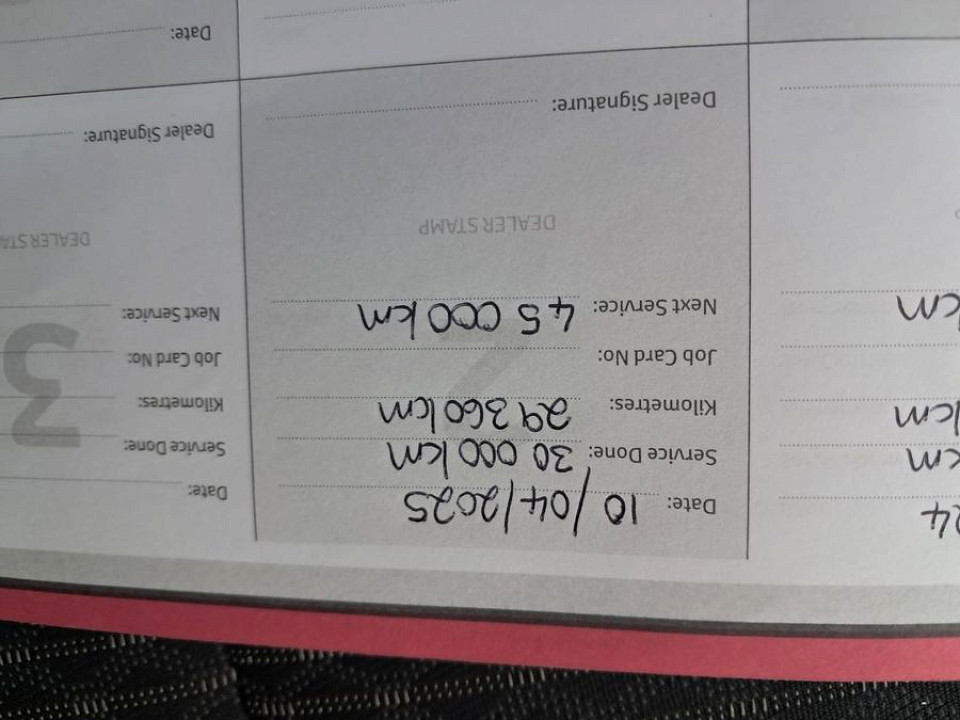 24
km
km
km
Date: 10/04/2025
Service Done: 30 000 km
Kilometres: 29 360 km
Job Card No:
Next Service: 45 000 km
DEALER STAMP
Dealer Signature:
3
Date:
Service Done:
Kilometres:
Job Card No:
Next Service:
DEALER STA
Dealer Signature:
Date: